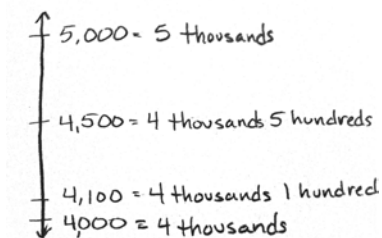 5,000 = 5 thousands
4,500 = 4 thousands 5 hundreds
4,100 = 4 thousands 1 hundred
4,000 = 4 thousands